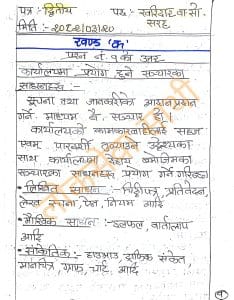 पत्र: द्वितीय पद: खरिदार वा सो सरह
मिति:- २०८२/०३/२०
खण्ड "क"
प्रश्न नं. १ को उत्तर
कार्यालयमा प्रयोग हुने सञ्चारका
साधनहरु:
सूचना तथा जानकारीको आदान प्रदान
गर्ने माध्यम नै सञ्चार हो
कार्यालयको कामकारबाहीलाई सहज
एवम् पारदर्शी तुल्याउने उद्देश्यका
साथ कार्यालयमा देहाय बमोजिमका
सञ्चारका साधनहरु प्रयोग गर्ने गरिन्छ
• लिखित साधन - चिठ्ठीपत्र, प्रतिवेदन,
लेख रचना, ऐन, नियम आदि
• मौखिक साधन:- छलफल, वार्तालाप
आदि
• सांकेतिक:- हाउभाउ, ट्राफिक संकेत
मानचित्र, ग्राफ, चार्ट, आदि